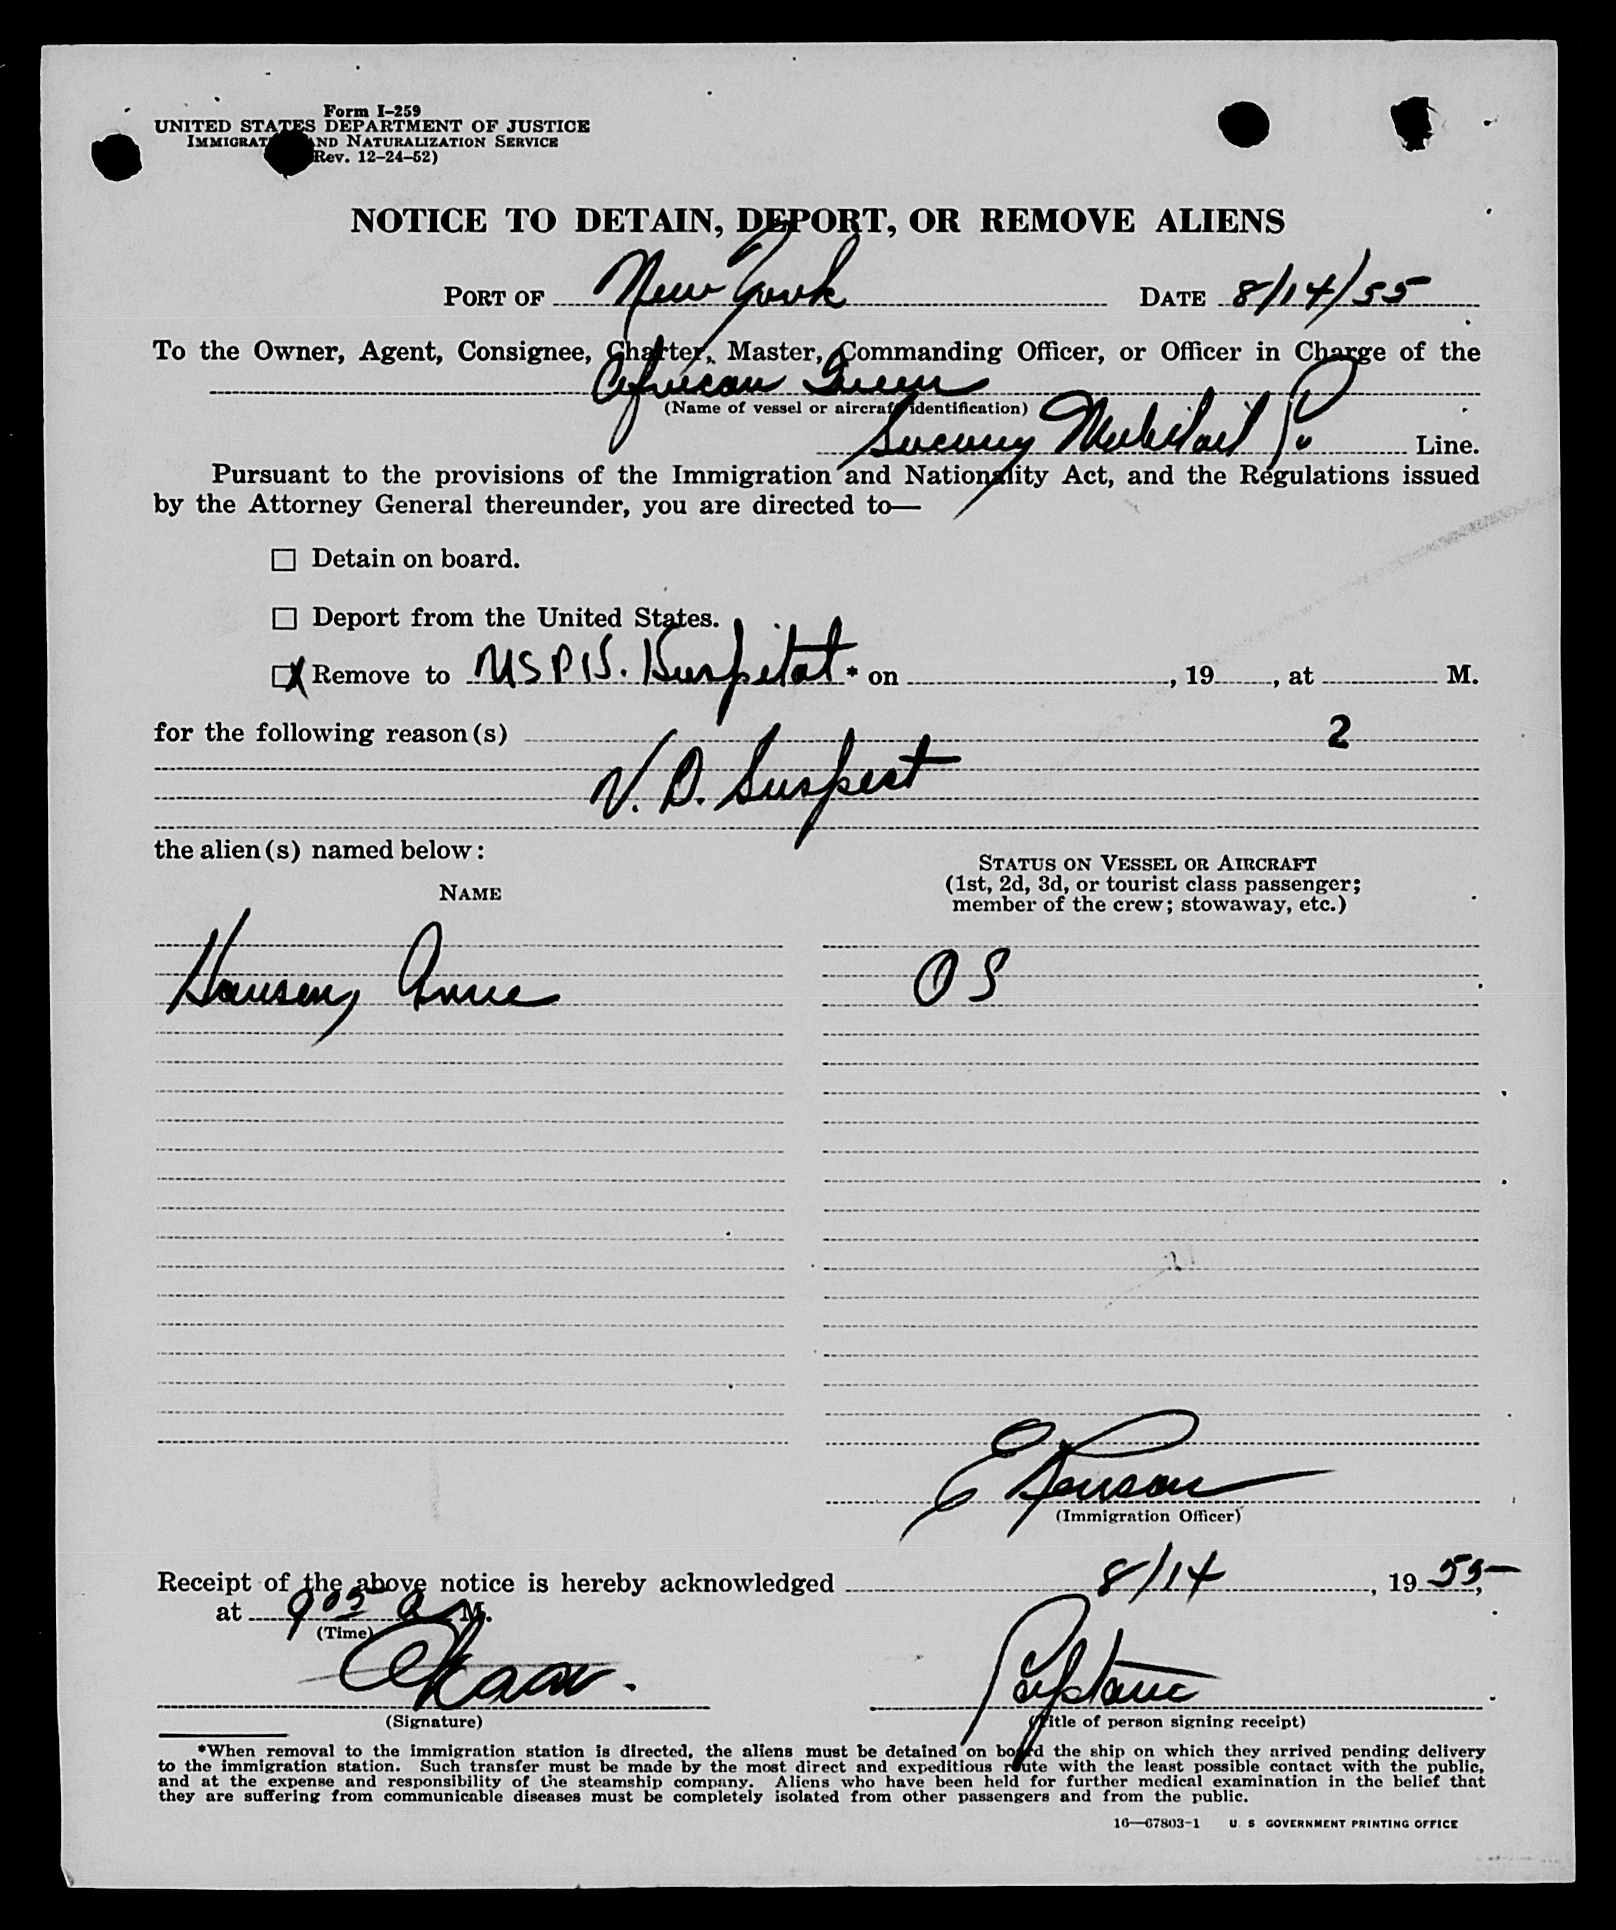 Form I-259
UNITED STATES DEPARTMENT OF JUSTICE
IMMIGRATION AND NATURALIZATION SERVICE
(Rev. 12-24-52)
NOTICE TO DETAIN, DEPORT, OR REMOVE ALIENS
PORT OF New York DATE 8/14/55
To the Owner, Agent, Consignee, Charter, Master, Commanding Officer, or Officer in Charge of the
African Queen
(Name of vessel or aircraft identification)
Socony Line.
Pursuant to the provisions of the Immigration and Nationality Act, and the Regulations issued
by the Attorney General thereunder, you are directed to—
☐ Detain on board.
☐ Deport from the United States.
☒ Remove to USPHS. Hospital * on , 19 , at M.
for the following reason(s) 2
V. D. Suspect
the alien(s) named below:
NAME
STATUS ON VESSEL OR AIRCRAFT
(1st, 2d, 3d, or tourist class passenger;
member of the crew; stowaway, etc.)
Hansen, Arne OS
E
(Immigration Officer)
Receipt of the above notice is hereby acknowledged 8/14, 1955,
at 905 a M.
(Time)
(Signature)
(Title of person signing receipt)
*When removal to the immigration station is directed, the aliens must be detained on board the ship on which they arrived pending delivery
to the immigration station. Such transfer must be made by the most direct and expeditious route with the least possible contact with the public,
and at the expense and responsibility of the steamship company. Aliens who have been held for further medical examination in the belief that
they are suffering from communicable diseases must be completely isolated from other passengers and from the public.
16—67803-1 U S GOVERNMENT PRINTING OFFICE